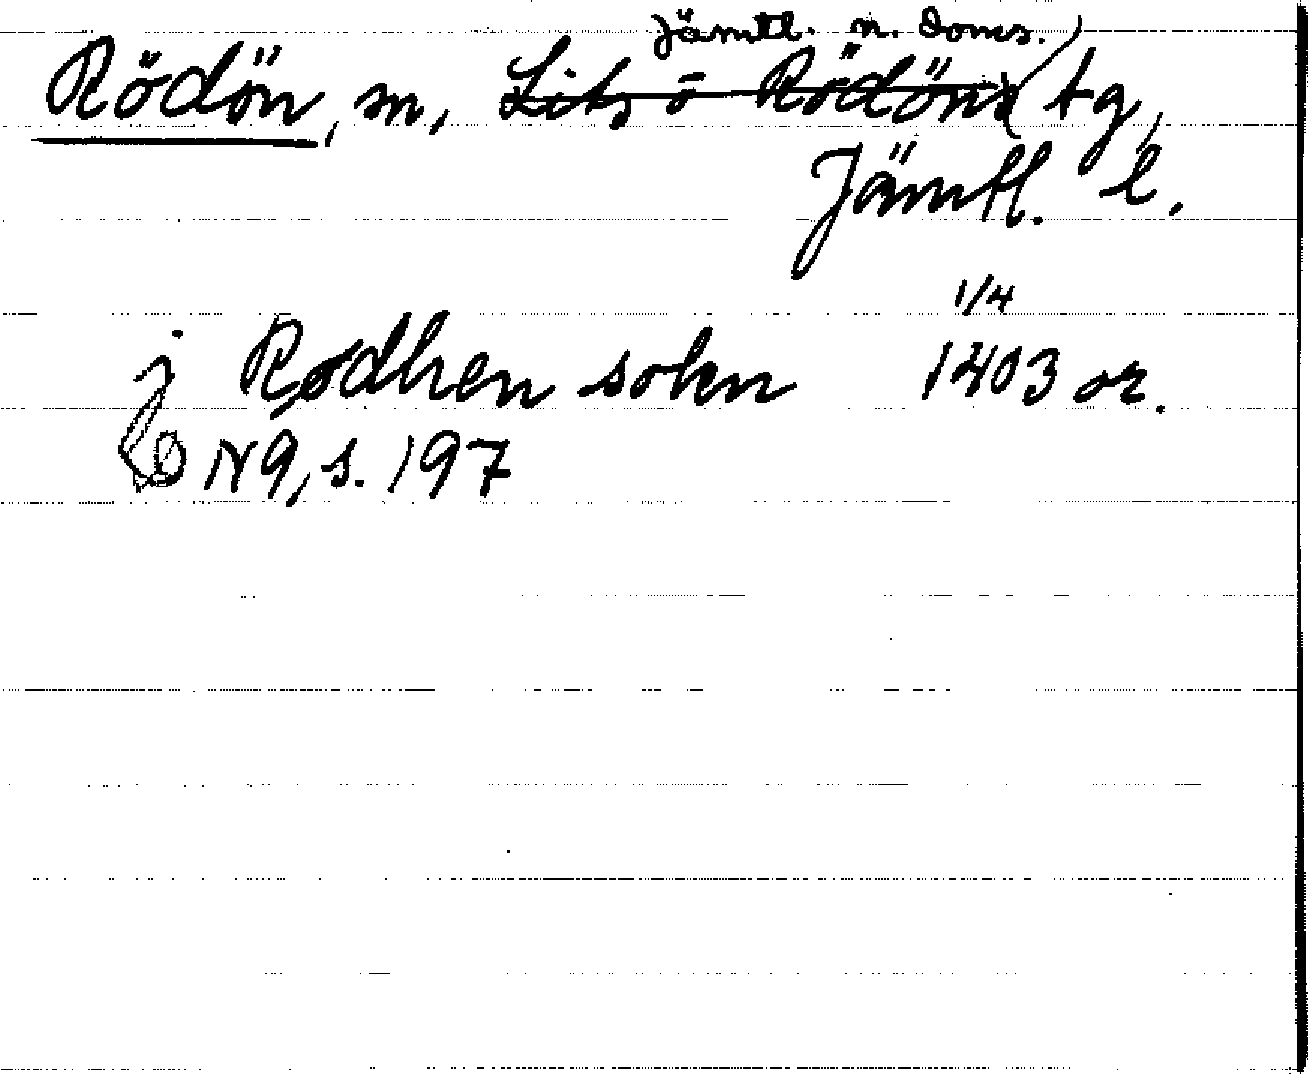 Jämtl. n. doms.
Rödön, sn, Lits o Rödöns tg,
Jämtl. l.
1/4
j Rødhen sokn 1403 or.
N9, s. 197